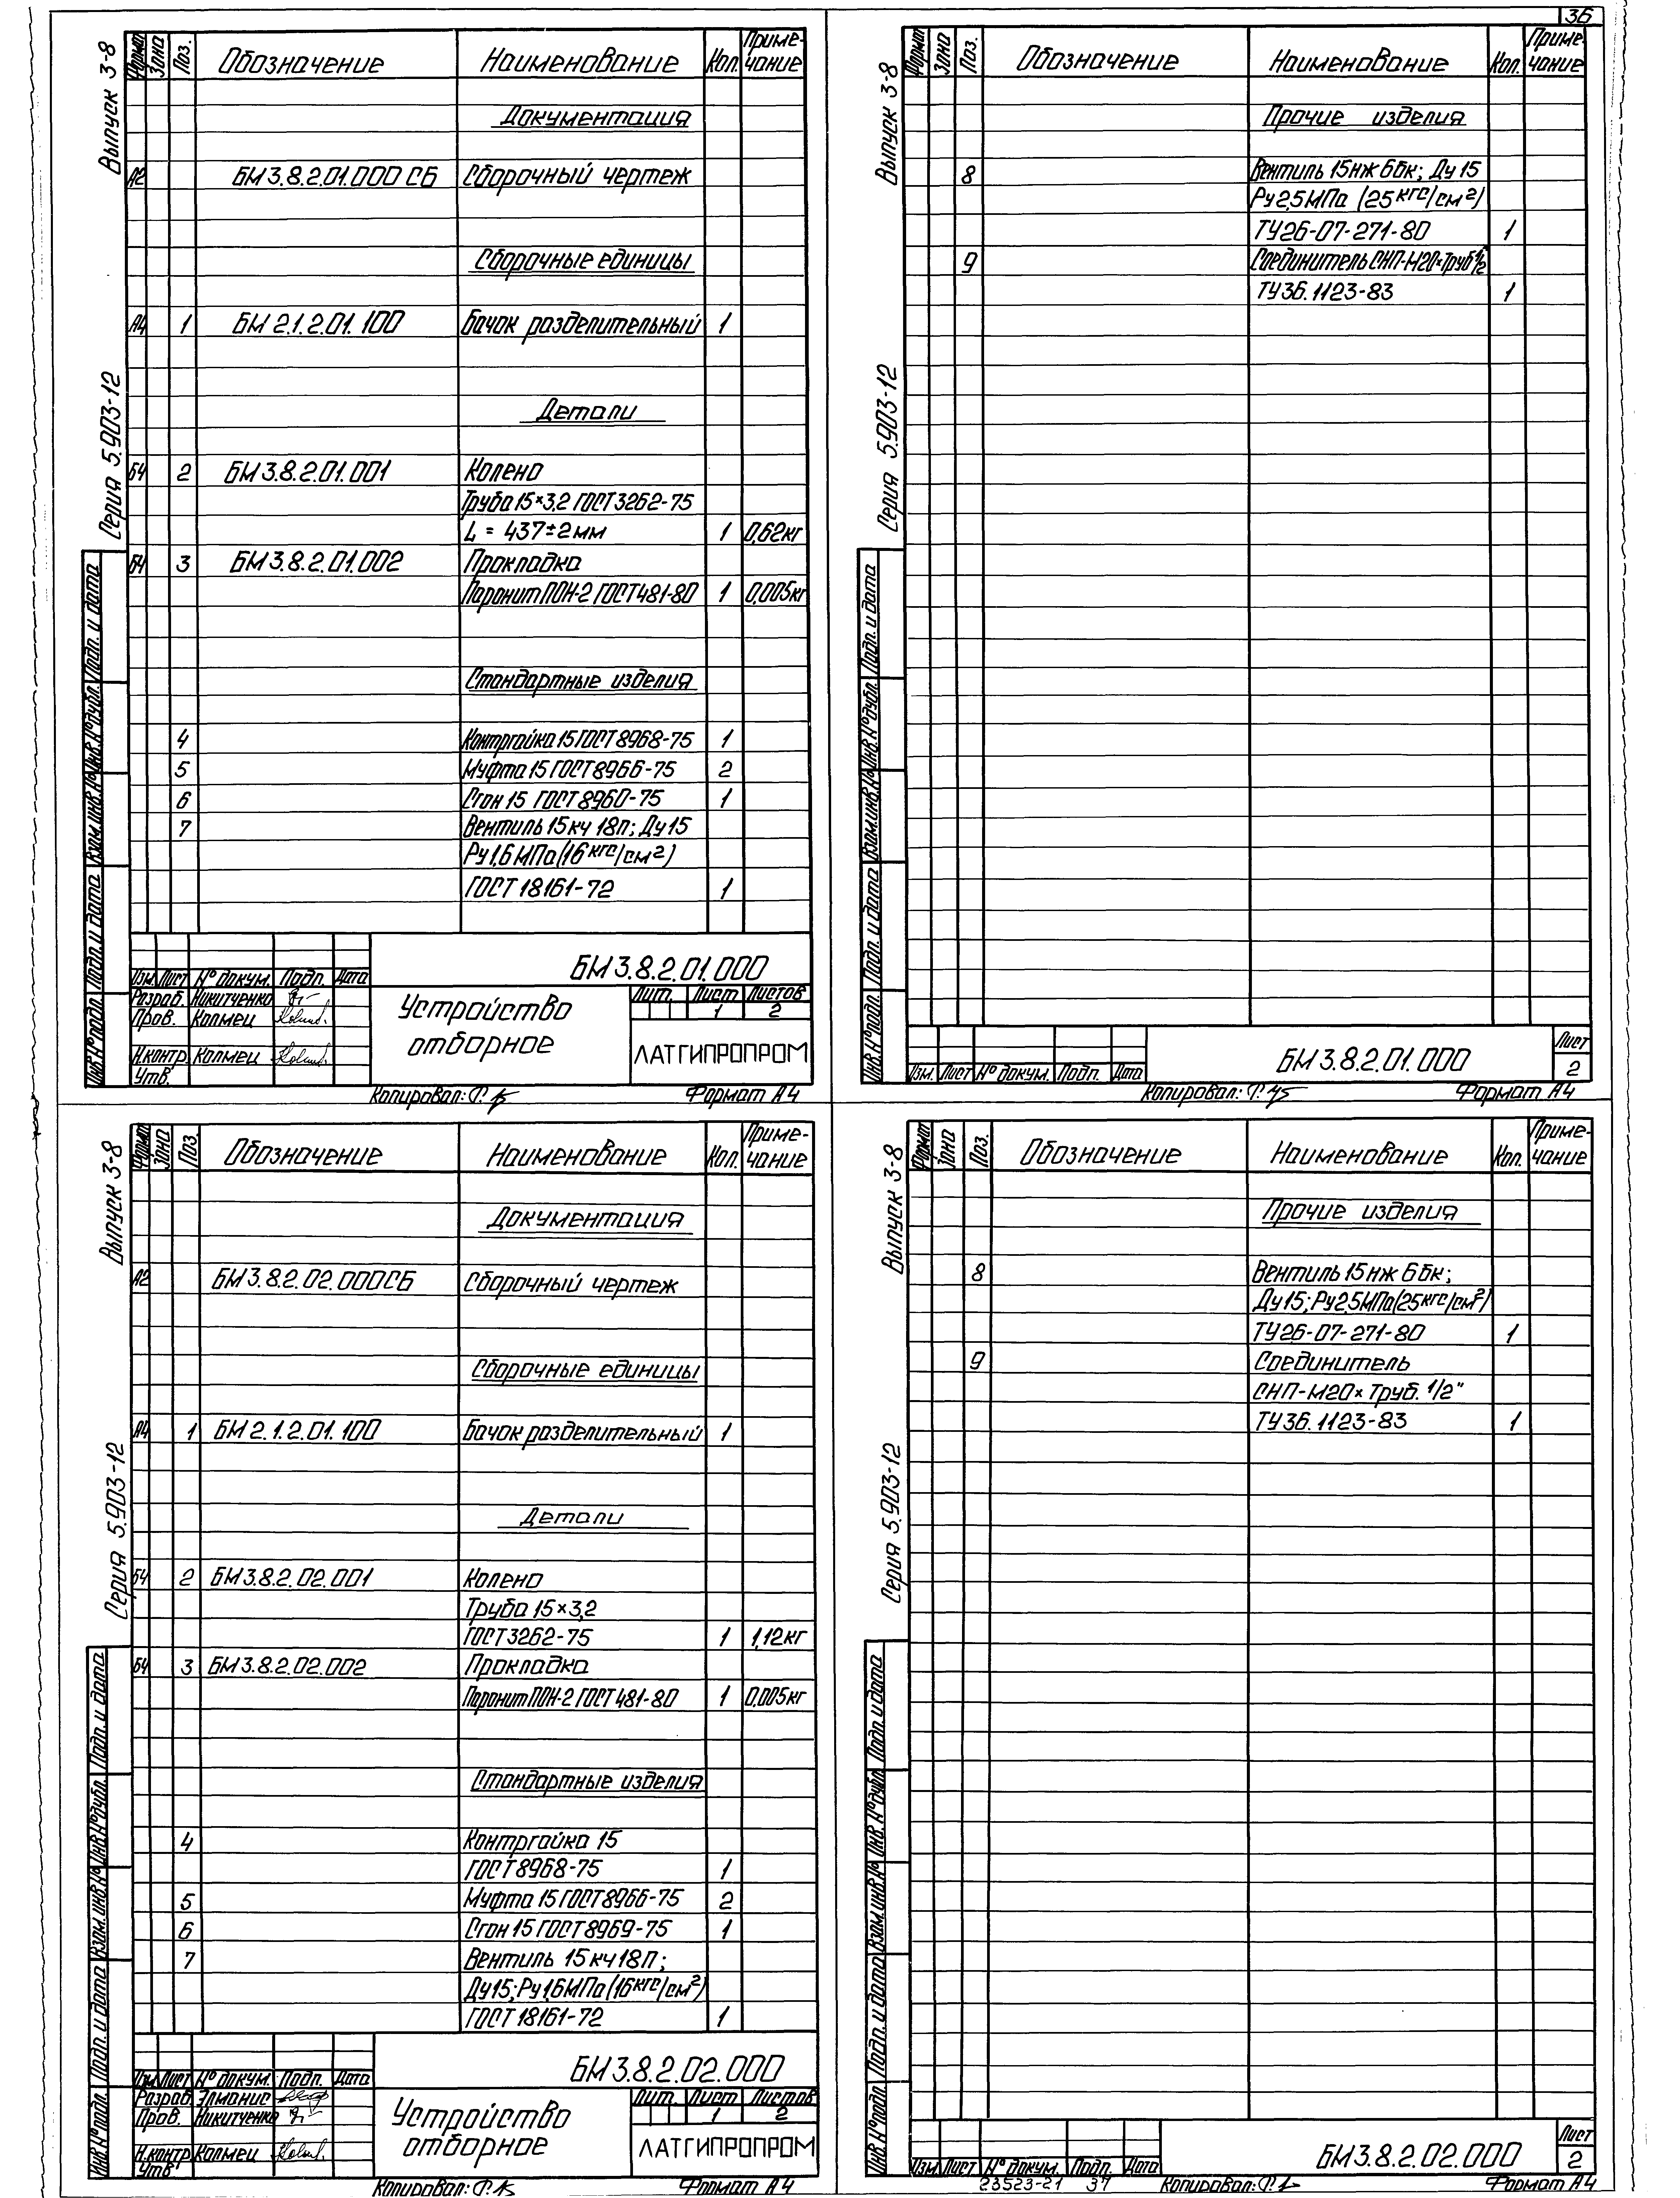 36
Выпуск 3-8
Серия 5.903-12
Формат Зона Поз. Обозначение Наименование Кол. Приме-
чание
Документация
А2 БМ 3.8.2.01.000 СБ Сборочный чертеж
Сборочные единицы
А4 1 БМ 2.1.2.01.100 Бачок разделительный 1
Детали
Б4 2 БМ 3.8.2.01.001 Колено
Труба 15×3,2 ГОСТ 3262-75
L = 437±2мм 1 0,62кг
Б4 3 БМ 3.8.2.01.002 Прокладка
Паронит ПОН-2 ГОСТ 481-80 1 0,005кг
Стандартные изделия
4 Контргайка 15 ГОСТ 8968-75 1
5 Муфта 15 ГОСТ 8966-75 2
6 Сгон 15 ГОСТ 8960-75 1
7 Вентиль 15 кч 18п; Ду 15
Ру 1,6 МПа (16 кгс/см²)
ГОСТ 18161-72 1
Инв.№подл. Подп. и дата Взам.инв.№ Инв.№дубл. Подп. и дата
БМ 3.8.2.01.000
Изм. Лист № докум. Подп. Дата
Разраб. Никитченко
Пров. Колмец
Н.контр. Колмец
Утв.
Устройство
отборное
Лит. Лист Листов
1 2
ЛАТГИПРОПРОМ
Копировал: Формат А4
Выпуск 3-8
Серия 5.903-12
Формат Зона Поз. Обозначение Наименование Кол. Приме-
чание
Прочие изделия
8 Вентиль 15нж 6бк; Ду 15
Ру 2,5 МПа (25 кгс/см²)
ТУ26-07-271-80 1
9 Соединитель СНП-М20×Труб 1/2"
ТУ36.1123-83 1
Инв.№подл. Подп. и дата Взам.инв.№ Инв.№дубл. Подп. и дата
Изм. Лист № докум. Подп. Дата
БМ 3.8.2.01.000
Лист
2
Копировал: Формат А4
Выпуск 3-8
Серия 5.903-12
Формат Зона Поз. Обозначение Наименование Кол. Приме-
чание
Документация
А2 БМ 3.8.2.02.000СБ Сборочный чертеж
Сборочные единицы
А4 1 БМ 2.1.2.01.100 Бачок разделительный 1
Детали
Б4 2 БМ 3.8.2.02.001 Колено
Труба 15×3,2
ГОСТ 3262-75 1 1,12кг
Б4 3 БМ 3.8.2.02.002 Прокладка
Паронит ПОН-2 ГОСТ 481-80 1 0,005кг
Стандартные изделия
4 Контргайка 15
ГОСТ 8968-75 1
5 Муфта 15 ГОСТ 8966-75 2
6 Сгон 15 ГОСТ 8969-75 1
7 Вентиль 15 кч 18п;
Ду 15; Ру 1,6 МПа (16 кгс/см²)
ГОСТ 18161-72 1
Инв.№подл. Подп. и дата Взам.инв.№ Инв.№дубл. Подп. и дата
БМ 3.8.2.02.000
Изм. Лист № докум. Подп. Дата
Разраб. Элманис
Пров. Никитченко
Н.контр. Колмец
Утв.
Устройство
отборное
Лит. Лист Листов
1 2
ЛАТГИПРОПРОМ
Копировал: Формат А4
Выпуск 3-8
Серия 5.903-12
Формат Зона Поз. Обозначение Наименование Кол. Приме-
чание
Прочие изделия
8 Вентиль 15нж 6бк;
Ду 15; Ру 2,5 МПа (25 кгс/см²)
ТУ26-07-271-80 1
9 Соединитель
СНП-М20×Труб. 1/2"
ТУ36.1123-83 1
Инв.№подл. Подп. и дата Взам.инв.№ Инв.№дубл. Подп. и дата
Изм. Лист № докум. Подп. Дата
БМ 3.8.2.02.000
Лист
2
23523-21 37 Копировал: Формат А4